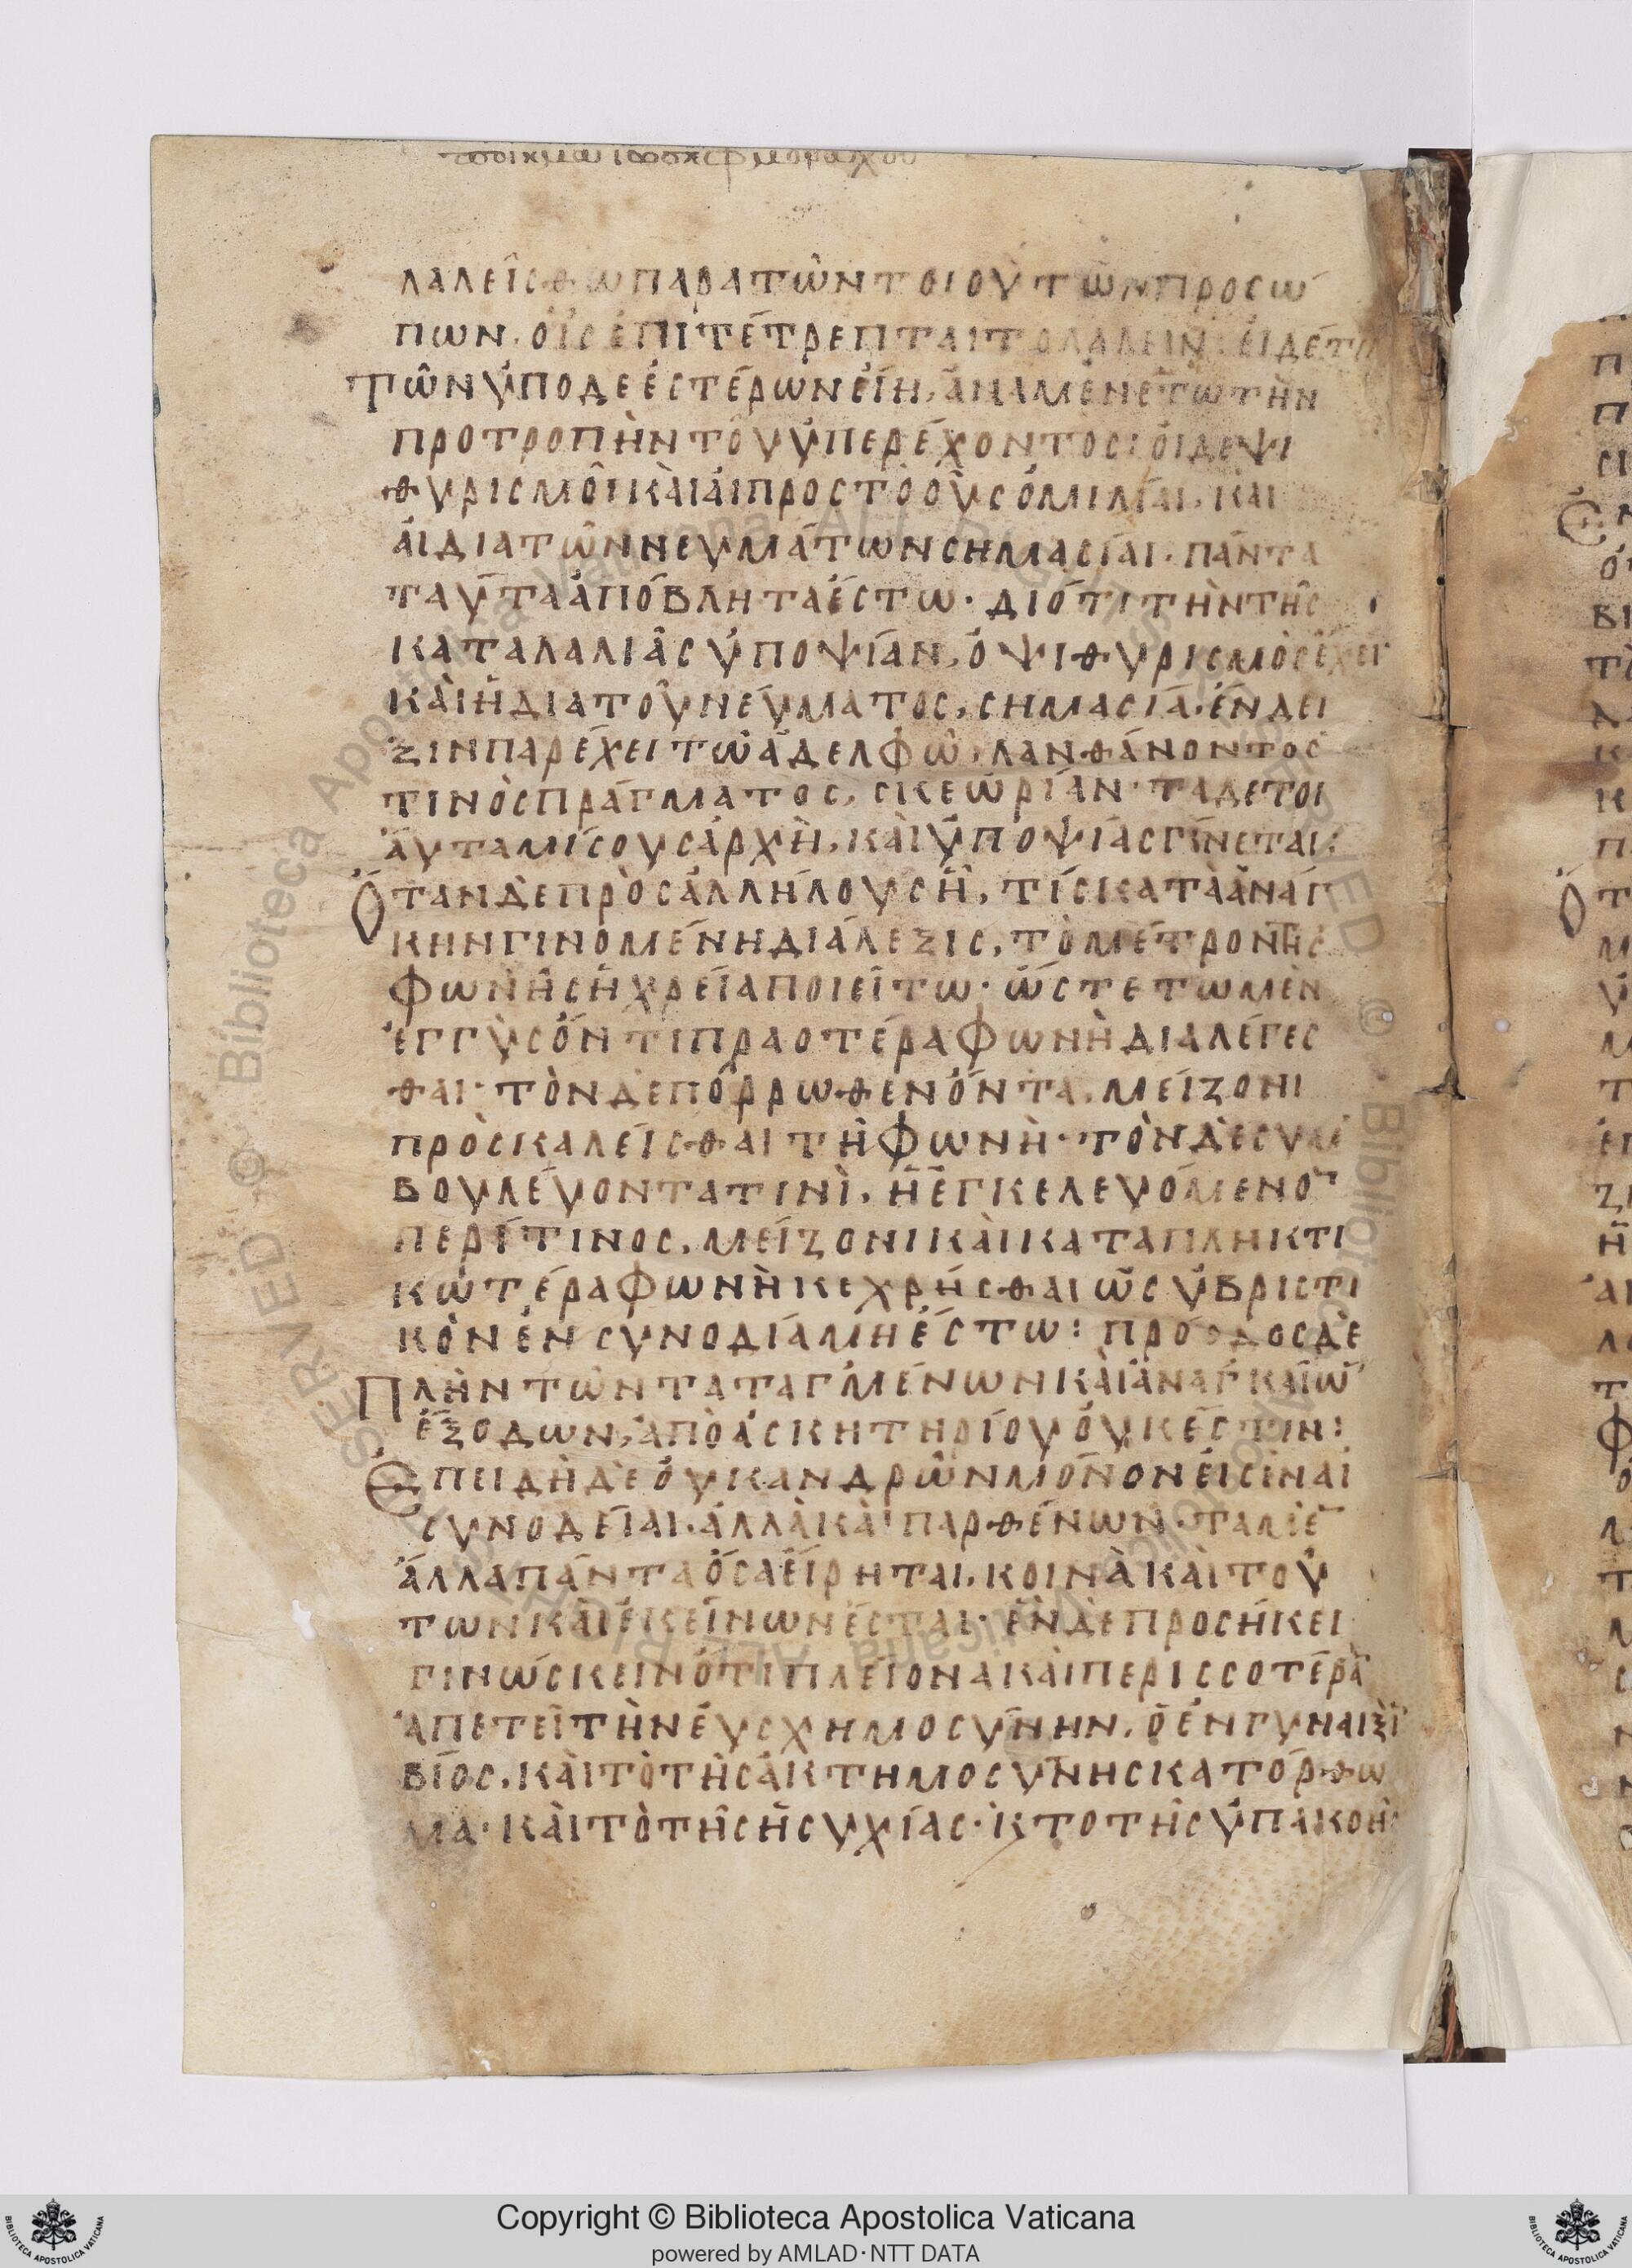 λαλείσθω παρα των τοιούτων προσώ
πων· οἷς ἐπιτέτρεπται το λαλεῖν· εἰ δέ τις
τῶν ὑποδεέστέρων εἴη, ἀναμενέτω τὴν
προτροπὴν τοῦ ὑπερέχοντος· οἱ δε ψι
θυρισμοὶ καὶ αἱ προς τὸ οὖς ὁμιλίαι, καὶ
αἱ δια τῶν νευμάτων σημασίαι· πάντα
ταῦτα ἀπόβλητα ἔστω· διότι τὴν τῆς
καταλαλιᾶς ὑποψίαν, ὁ ψιθυρισμὸς ἔχει
καὶ ἡ δια τοῦ νεύματος, σημασία, ἔνδει
ξιν παρέχει τῶ ἀδελφῶ, λανθάνοντος
τινὸς πράγματος, σκεωρίαν· τα δε τοι
αῦτα μίσους ἀρχὴ, καὶ ὑποψίας γίνεται·
Ὅταν δὲ πρὸς ἀλλήλους ἦ, τίς κατὰ ἀνάγ
κην γινομένη διάλεξις, τὸ μέτρον τῆς
φωνῆς ἡ χρεία ποιείτω· ὥστε τω μὲν
ἐγγὺς ὄντι πραοτέρα φωνὴ διαλέγεσ
θαι· τὸν δὲ πόρρωθεν ὄντα, μείζονι
πρὸσκαλεῖσθαι τῆ φωνῆ· τὸν δὲ συμ
βουλέυοντα τινὶ, ἢ ἐγκελευόμενο̅
περί τινος, μείζονι καὶ καταπληκτι
κωτέρα φωνὴ κεχρῆσθαι ὡς ὑβριστι
κὸν ἐν συνοδία μὴ ἔστω: πρόοδος δὲ
Πλὴν τῶν τατταγμένων καὶ ἀναγκαίω̅
ἐξοδων, ἀπὸ ἀσκητηρίου οὐκ ἔστιν:
Ἐπειδὴ δὲ οὐκ ανδρῶν μόνον εἰσὶν αἱ
συνοδεῖαι· ἀλλὰ καὶ παρθένων· τα μὲ̅
ἄλλα πάντα ὅσα εἴρηται, κοινὰ καὶ τού
των καὶ ἐκείνων ἔσται· ἓν δὲ προσήκει
γινώσκειν ὅτι πλείονα καὶ περισσοτέρα̅
ἀπετεῖ τὴν ἐυσχημοσύνην, ὁ ἐν γυναιξὶ
βίος, καὶ τὸ τῆς ἀκτημοσύνης κατόρθω
μα· καὶ τὸ τῆς ἡσυχίας· κ το τῆς ὑπακοῆς
Copyright © Biblioteca Apostolica Vaticana
powered by AMLAD·NTT DATA